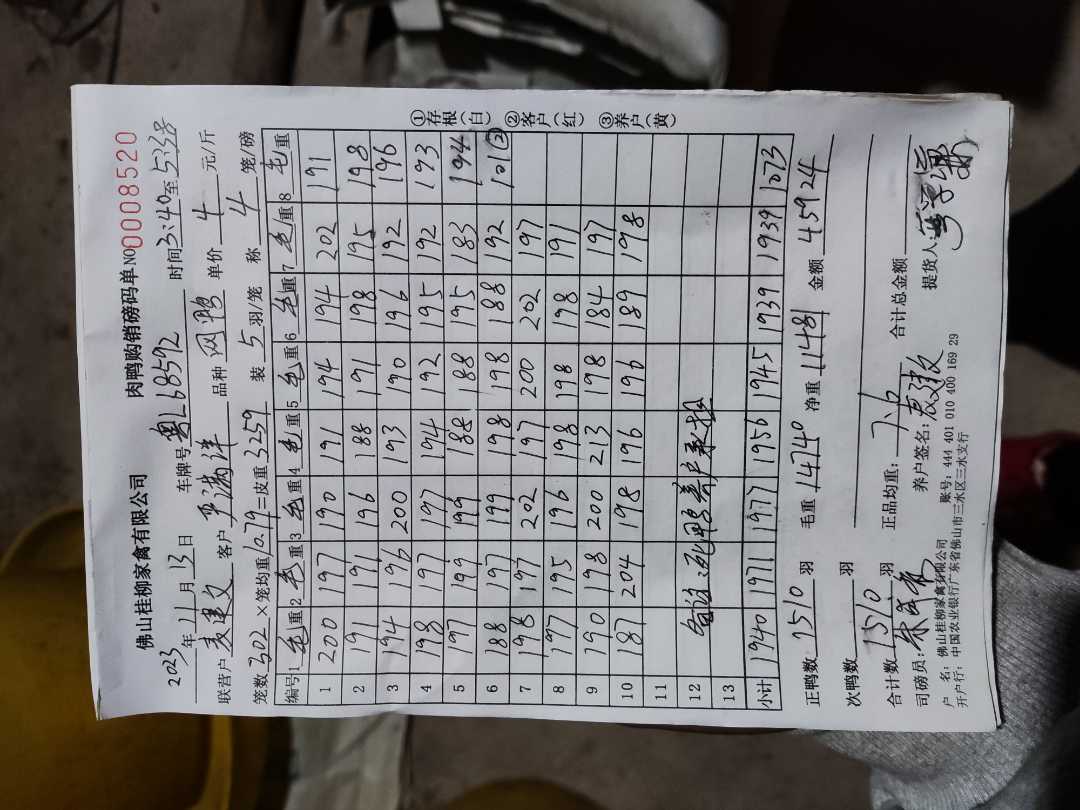 佛山桂柳家禽有限公司 肉鸭购销磅码单 NO 0008520
2023年11月13日 车牌号 粤L68592 时间3:40至5:38
联营户 客户 品种 单价 4 元/斤
笼数302×笼均重10.79=皮重3259 装 5 羽/笼 称 4 笼/磅
编号 1毛重 2毛重 3毛重 4毛重 5毛重 6毛重 7毛重 8毛重
1 200 197 190 191 194 194 202 191
2 191 191 196 188 191 198 195 198
3 194 196 200 193 190 196 192 196
4 198 197 197 194 192 195 192 193
5 197 199 199 188 188 195 183 194
6 188 197 199 198 198 188 192 101②
7 198 197 202 197 200 202 197
8 197 195 196 198 198 198 191
9 190 198 200 213 198 184 197
10 187 204 198 196 196 189 198
11
12 死鸭养户承担
13
小计 1940 1971 1977 1956 1945 1939 1939 1073
正鸭数 1510 羽 毛重 14740 净重 11481 金额 45924
次鸭数 羽
合计数 1510 羽 正品均重: 7.6 合计总金额
司磅员: 养户签名: 提货人:
户 名: 佛山桂柳家禽有限公司 账号: 444 401 010 400 169 29
开户行: 中国农业银行广东省佛山市三水区三水支行
①存根(白) ②客户(红) ③养户(黄)